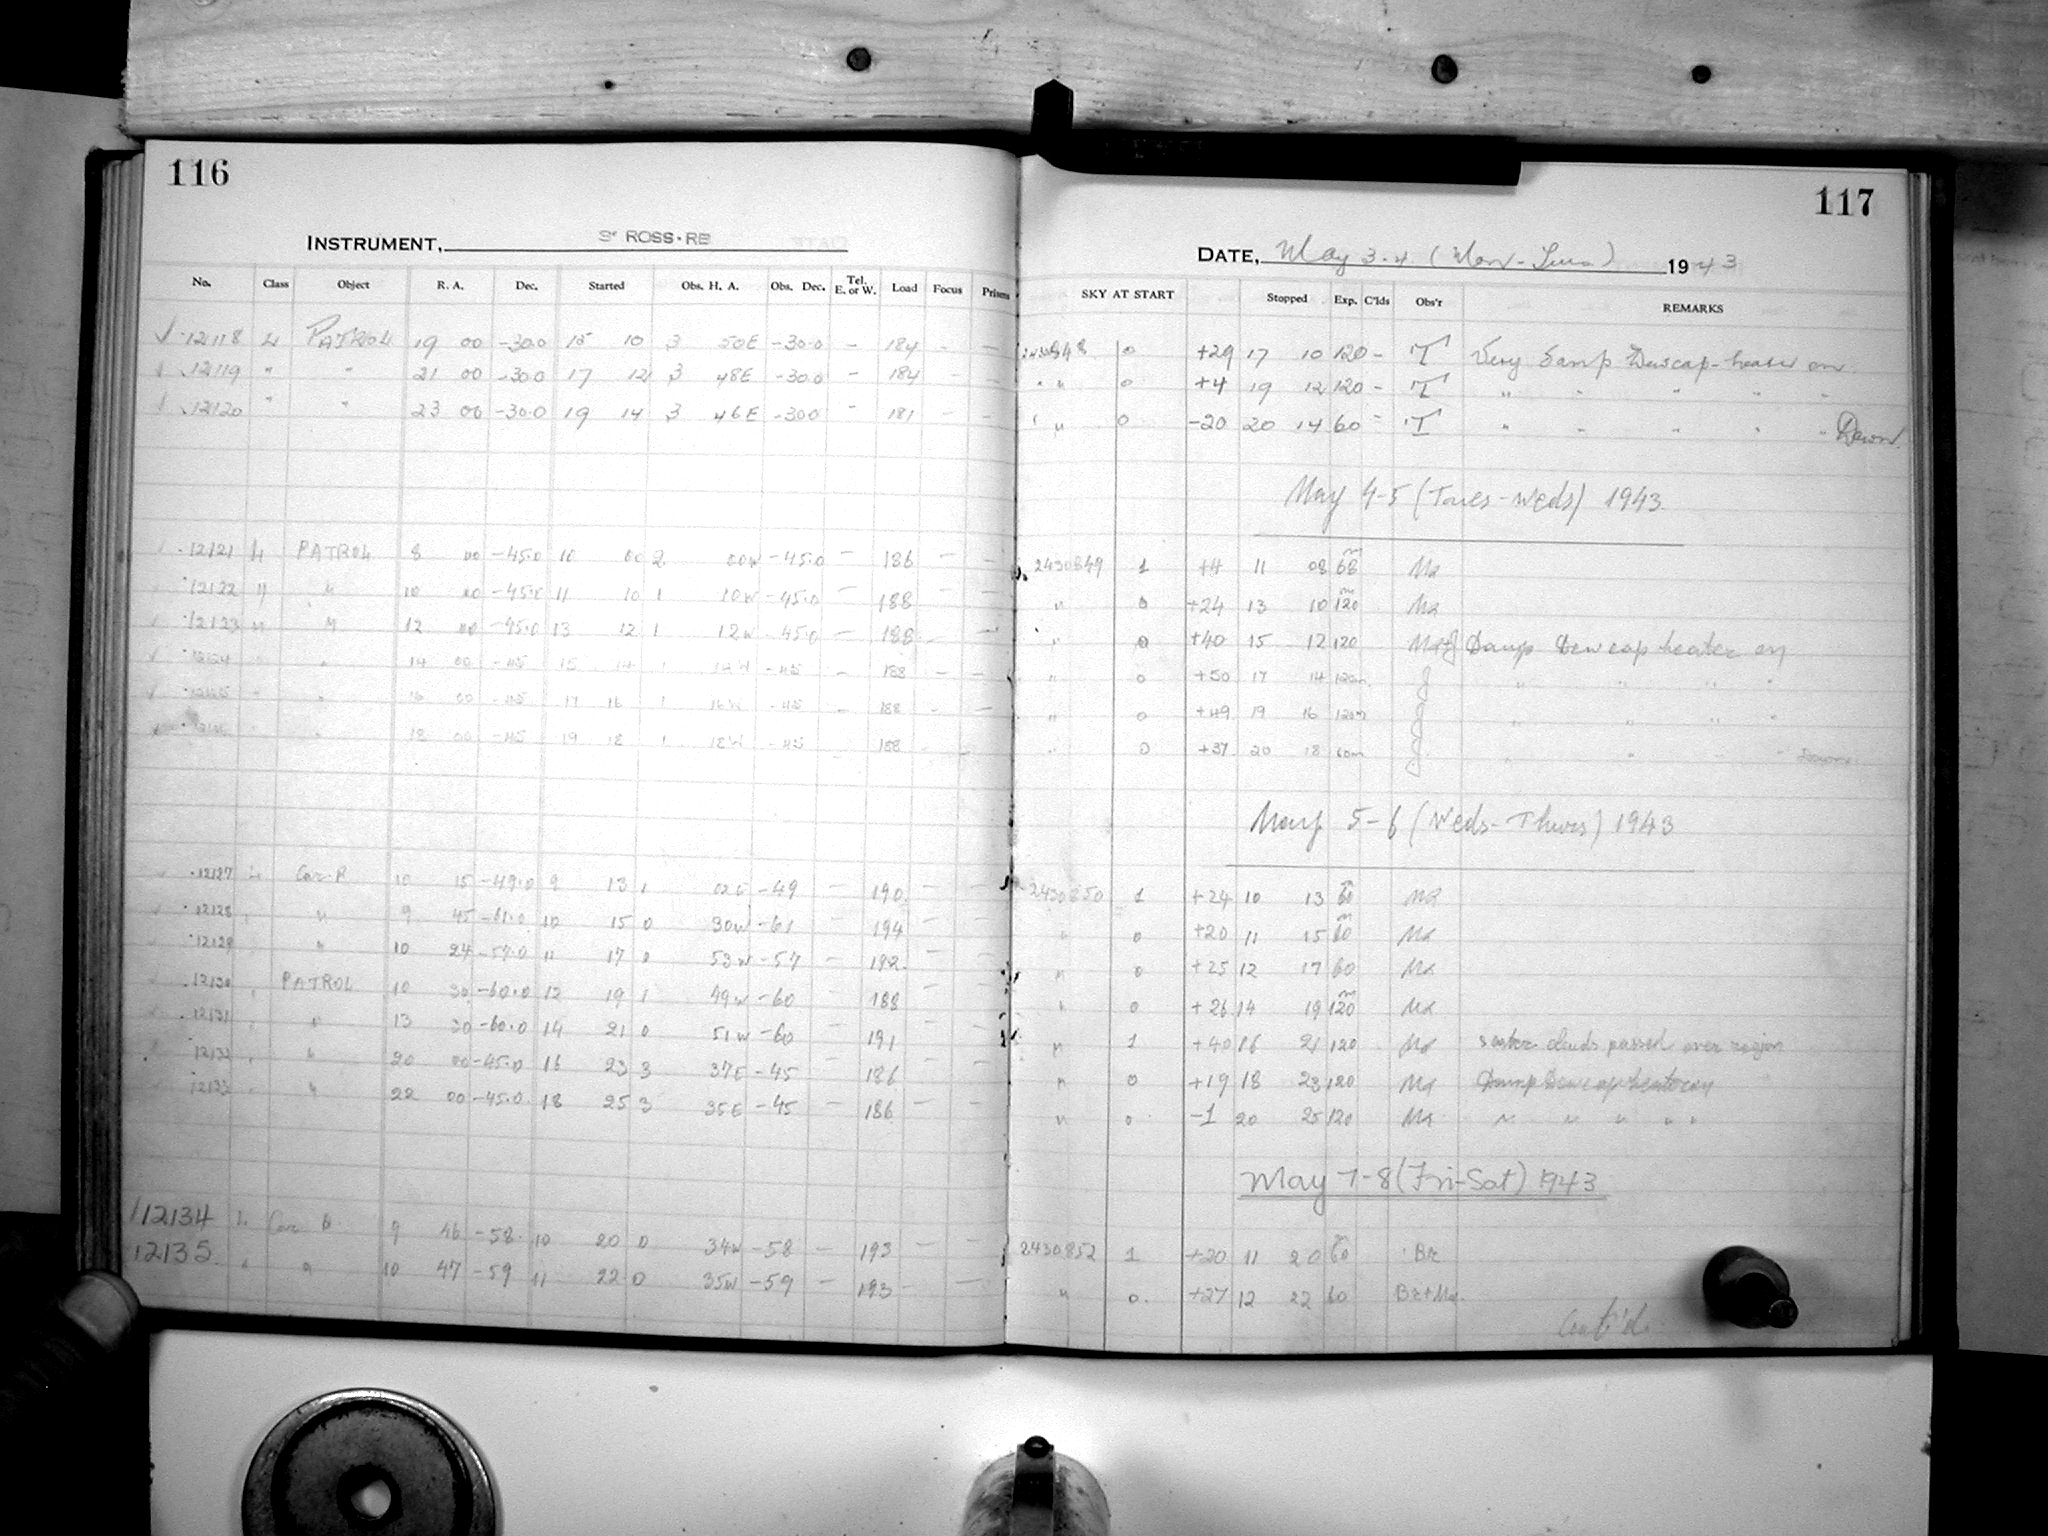 116
INSTRUMENT, 3" ROSS-RB
No. Class Object R. A. Dec. Started Obs. H. A. Obs. Dec. Tel. E. or W. Load Focus Prisms
12118 L PATROL 19 00 -30.0 15 10 3 50E -30.0 - 184 - -
12119 " " 21 00 -30.0 17 12 3 48E -30.0 - 184 - -
12120 " " 23 00 -30.0 19 14 3 46E -30.0 - 181 - -
12121 L PATROL 8 00 -45.0 10 00 2 00W -45.0 - 186 - -
12122 " " 10 00 -45.0 11 10 1 10W -45.0 - 188 - -
12123 " " 12 00 -45.0 13 12 1 12W -45.0 - 188 - -
12124 " " 14 00 -45 15 14 1 14W -45 - 188 - -
12125 " " 16 00 -45 17 16 1 16W -45 - 188 - -
12126 " " 18 00 -45 19 18 1 18W -45 - 188 - -
12127 L Car. R 10 15 -49.0 9 13 1 02E -49 - 190 - -
12128 " " 9 45 -61.0 10 15 0 30W -61 - 194 - -
12129 " 10 24 -57.0 11 17 0 53W -57 - 192 - -
12130 " PATROL 10 30 -60.0 12 19 1 49W -60 - 188 - -
12131 " " 13 30 -60.0 14 21 0 51W -60 - 191 - -
12132 " " 20 00 -45.0 16 23 3 37E -45 - 186 - -
12133 " " 22 00 -45.0 18 25 3 35E -45 - 186 - -
12134 L Car 9 46 -58 10 20 0 34W -58 - 193 - -
12135 " " 10 47 -59 11 22 0 35W -59 - 193 - -
117
DATE, May 3-4 (Mon-Tues) 1943
SKY AT START Stopped Exp. C'lds Obs'r REMARKS
2430848 0 +29 17 10 120 - T Very Damp Dewcap-heater on
" " 0 +4 19 12 120 - T " " " " "
" " 0 -20 20 14 60 - T " " " " " Dawn
May 4-5 (Tues-Weds) 1943
2430849 1 +4 11 08 68m Ma
" 0 +24 13 10 120m Ma
" 0 +40 15 12 120 Ma+J Damp Dew cap heater on
" 0 +50 17 14 120m J " " " "
" 0 +49 19 16 120m J " " " "
" 0 +37 20 18 60m J " " " " Dawn
May 5-6 (Weds-Thurs) 1943
2430850 1 +24 10 13 60m Ma
" 0 +20 11 15 60m Ma
" 0 +25 12 17 60 Ma
" 0 +26 14 19 120m Ma
" 1 +40 16 21 120 Ma clouds passed over region
" 0 +19 18 23 120 Ma Damp Dew cap heater on
" 0 -1 20 25 120 Ma " " " " "
May 7-8 (Fri-Sat) 1943
2430852 1 +20 11 20 60m Br
" 0 +27 12 22 60 Br+Ma
Cont'd